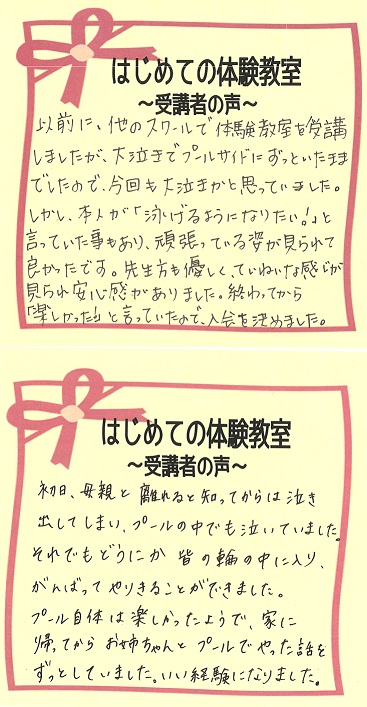 はじめての体験教室
～受講者の声～
以前に、他のスクールで体験教室を受講
しましたが、大泣きでプールサイドにずっといたまま
でしたので、今回も大泣きかと思っていました。
しかし、本人が「泳げるようになりたい!」と
言っていた事もあり、頑張っている姿が見られて
良かったです。先生方も優しく、ていねいな感じが
見られ安心感がありました。終わってから
「楽しかった!」と言っていたので、入会を決めました。
はじめての体験教室
～受講者の声～
初日、母親と離れると知ってからは泣き
出してしまい、プールの中でも泣いていました。
それでもどうにか皆の輪の中に入り、
がんばってやりきることができました。
プール自体は楽しかったようで、家に
帰ってからお姉ちゃんとプールでやった話を
ずっとしていました。いい経験になりました。